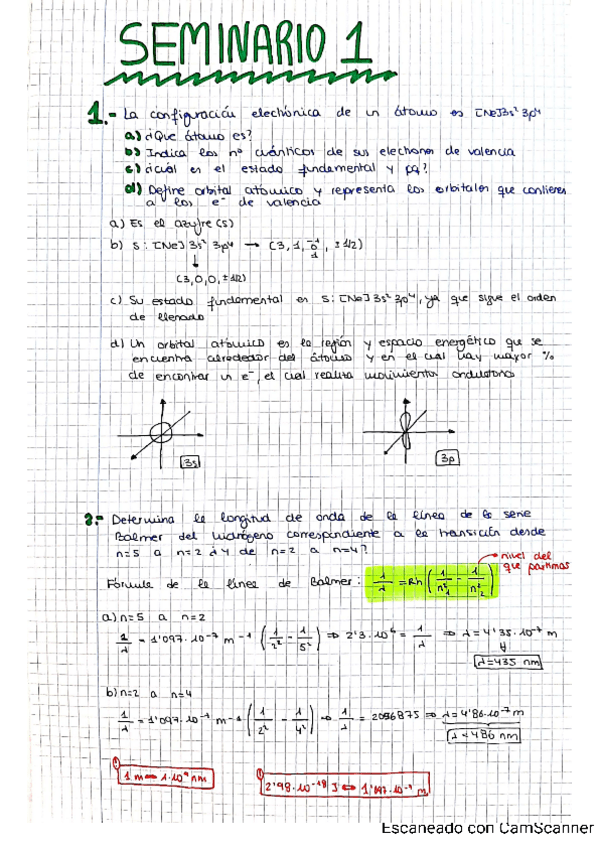 SEMINARIO 1
1.- La configuración electrónica de un átomo es [Ne]3s² 3p⁴
a) ¿Que átomo es?
b) Indica los nº cuánticos de sus electrones de valencia
c) ¿cuál es el estado fundamental y pq?
d) Define orbital atómico y representa los orbitales que contienen
a los e⁻ de valencia
a) Es el azufre (S)
b) S: [Ne] 3s² 3p⁴ → (3, 1, -1 0 1, ±1/2)
↓
(3,0,0,±1/2)
c) Su estado fundamental es S: [Ne] 3s² 3p⁴, ya que sigue el orden
de llenado
d) Un orbital atómico es la región y espacio energético que se
encuentra alrededor del átomo y en el cual hay mayor %
de encontrar un e⁻, el cual realiza movimientos ondulatorios
3s
3p
2.- Determina la longitud de onda de la línea de la serie
Balmer del hidrógeno correspondiente a la transición desde
n=5 a n=2 ¿Y de n=2 a n=4?
nivel del
que partimos
Fórmula de la línea de Balmer: 1/λ = Rh (1/n²₁ - 1/n²₂)
a) n=5 a n=2
1/λ = 1'097·10⁻⁷ m⁻¹ (1/2² - 1/5²) ⇒ 2'3·10⁶ = 1/λ ⇒ λ = 4'35·10⁻⁷ m
λ=435 nm
b) n=2 a n=4
1/λ = 1'097·10⁻⁷ m-1 (1/2² - 1/4²) ⇒ 1/λ = 2056875 ⇒ λ = 4'86·10⁻⁷ m
λ=486 nm
1 m ↔ 1·10⁹ nm
2'98·10⁻¹⁸ J ↔ 1'097·10⁻⁷ m
Escaneado con CamScanner